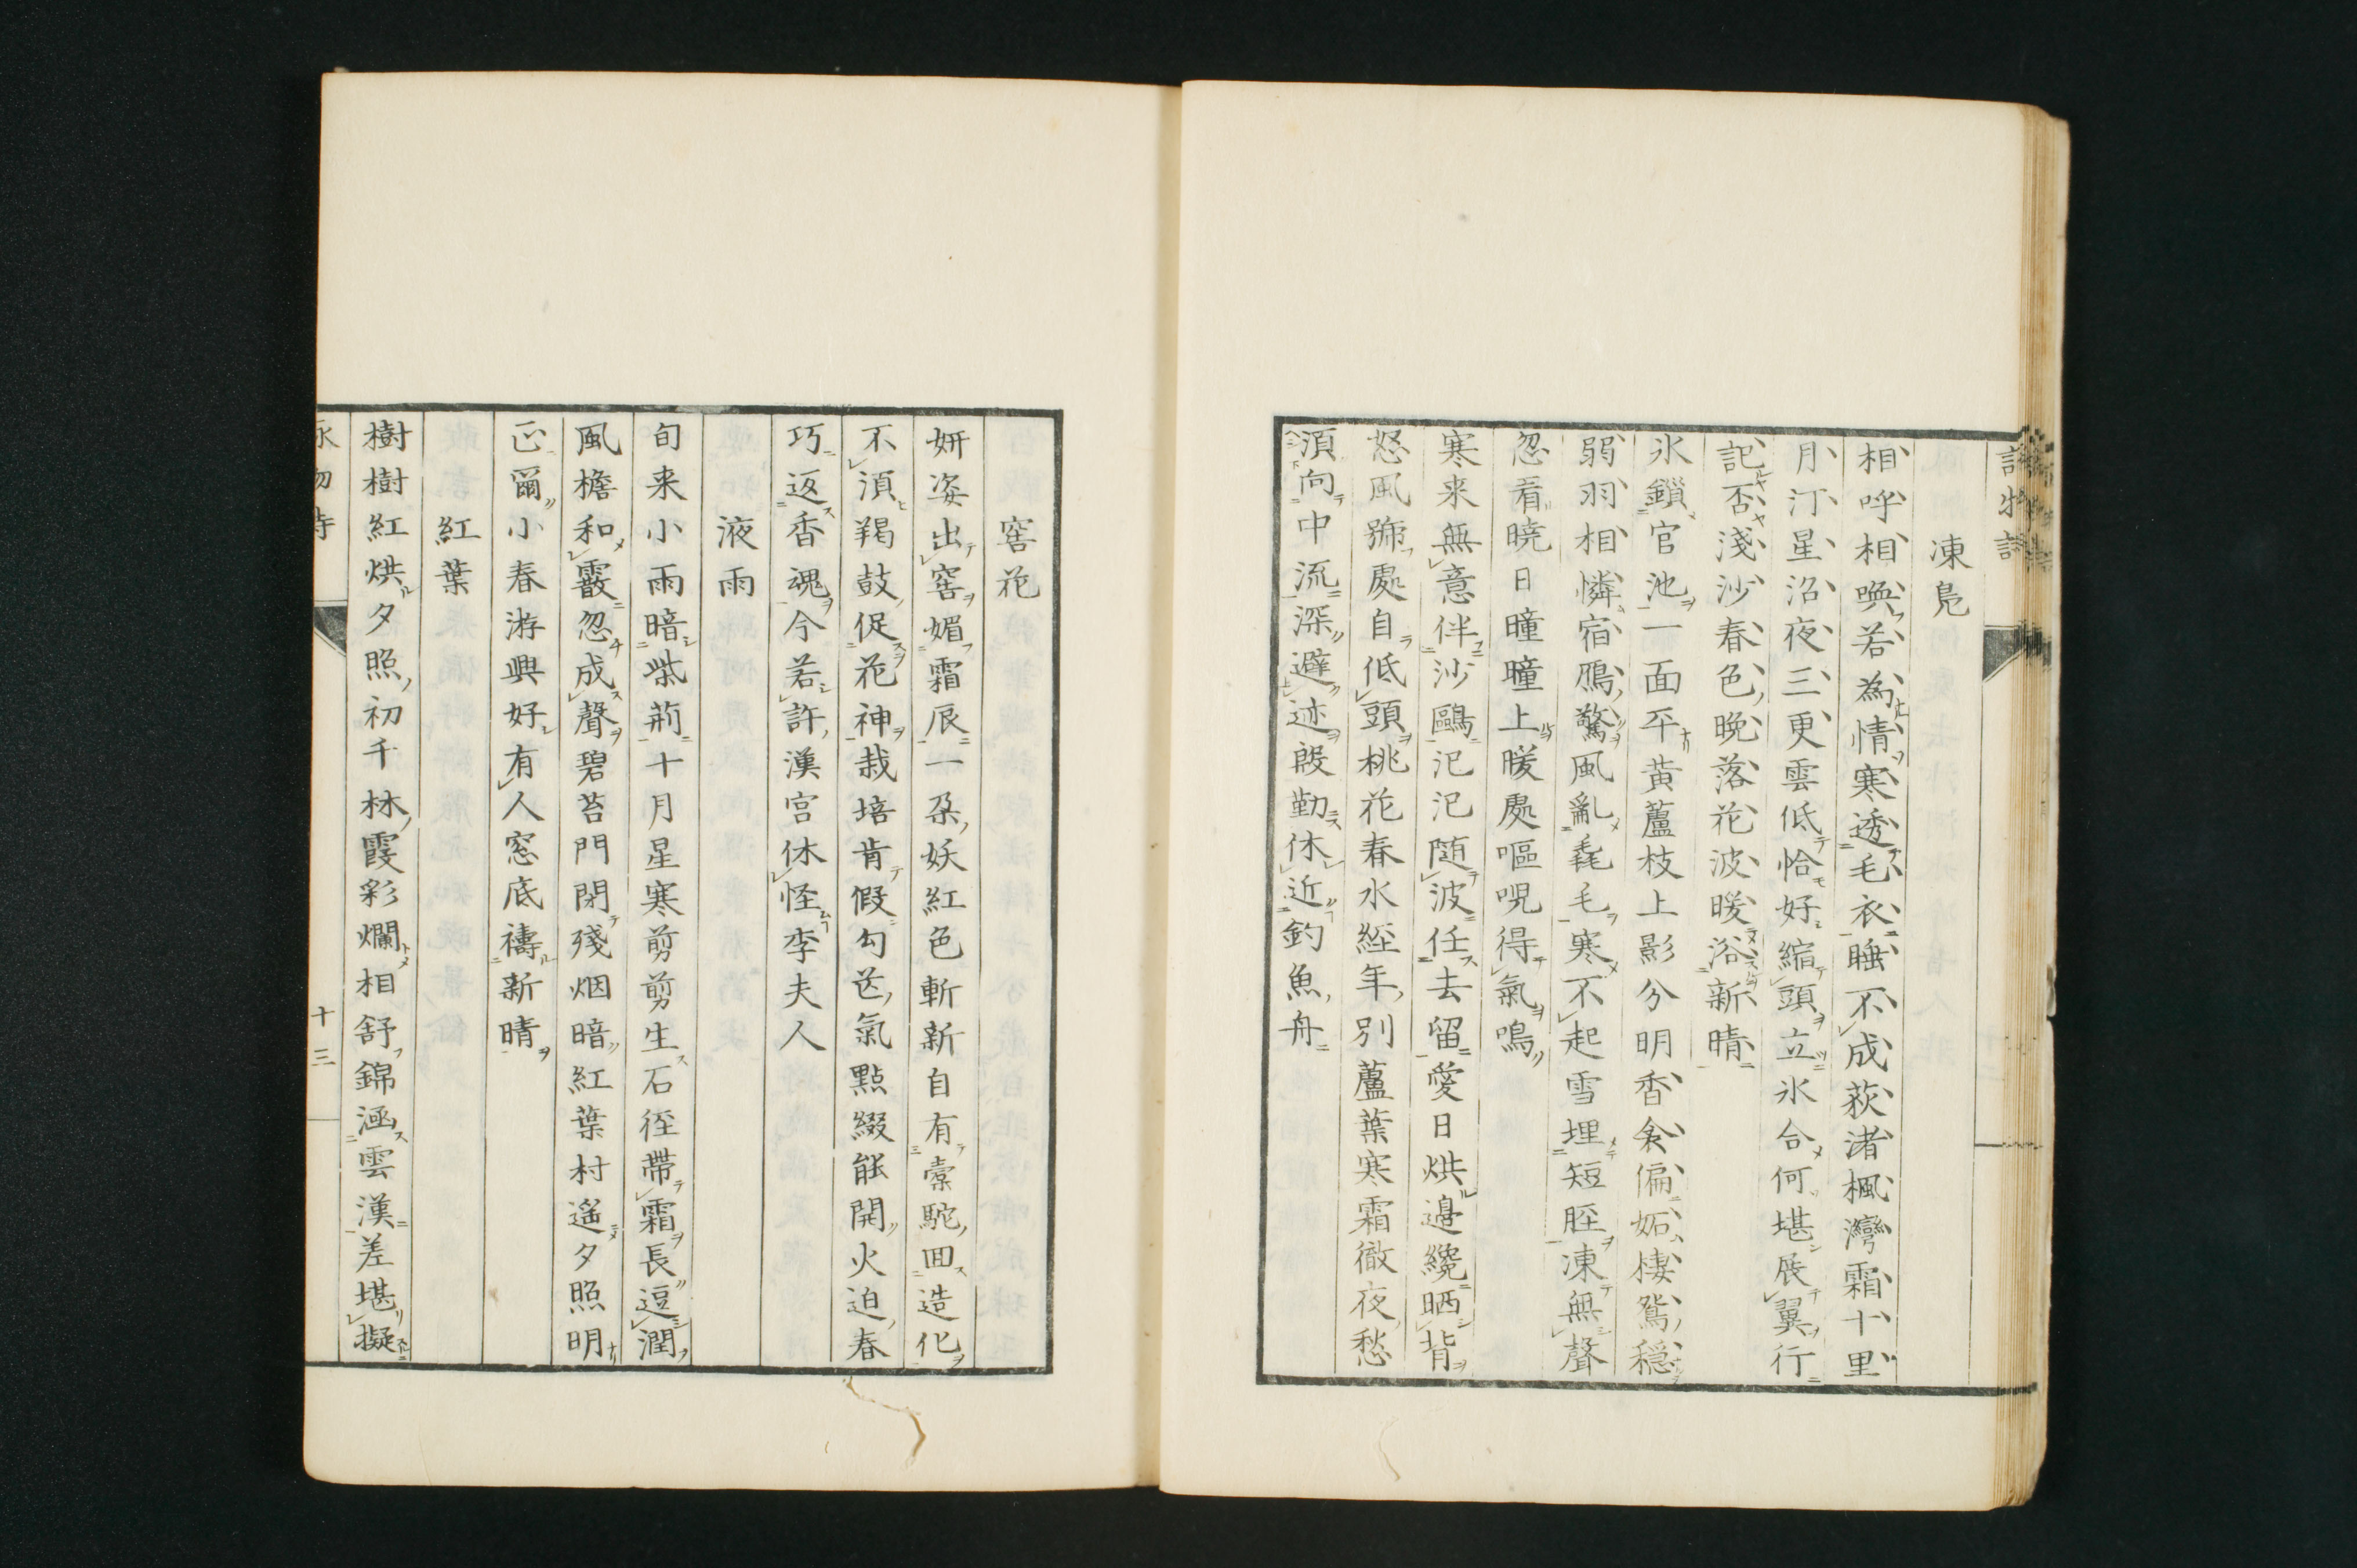 凍鳬
相呼相喚若為情寒透毛衣睡不成荻渚楓灣霜十里
月汀星沼夜三更雲低恰好縮頭立氷合何堪展翼行
記否淺沙春色晩落花波暖浴新晴
氷鎖官池一面平黄蘆枝上影分明香衾偏妬棲鴛穏
弱羽相憐宿鴈驚風亂毳毛寒不起雪埋短脛凍無聲
忽看曉日曈曈上暖處嘔呪得氣鳴
寒来無意伴沙鷗汜汜随波任去留愛日烘邉纔晒背
怒風號處自低頭桃花春水經年別蘆葉寒霜徹夜愁
須向中流深避迹慇勤休近釣魚舟
窖花
妍姿出窖媚霜辰一朶妖紅色斬新自有槖駝囬造化
不須羯鼓促花神栽培肯假勾芒氣點綴能開火迫春
巧返香魂今若許漢宫休怪李夫人
液雨
旬来小雨暗柴荊十月星寒剪剪生石徑帶霜長逗潤
風檐和霰忽成聲碧苔門閉殘烟暗紅葉村遥夕照明
正爾小春游興好有人窓底禱新晴
紅葉
樹樹紅烘夕照初千林霞彩爛相舒錦涵雲漢差堪擬
十三